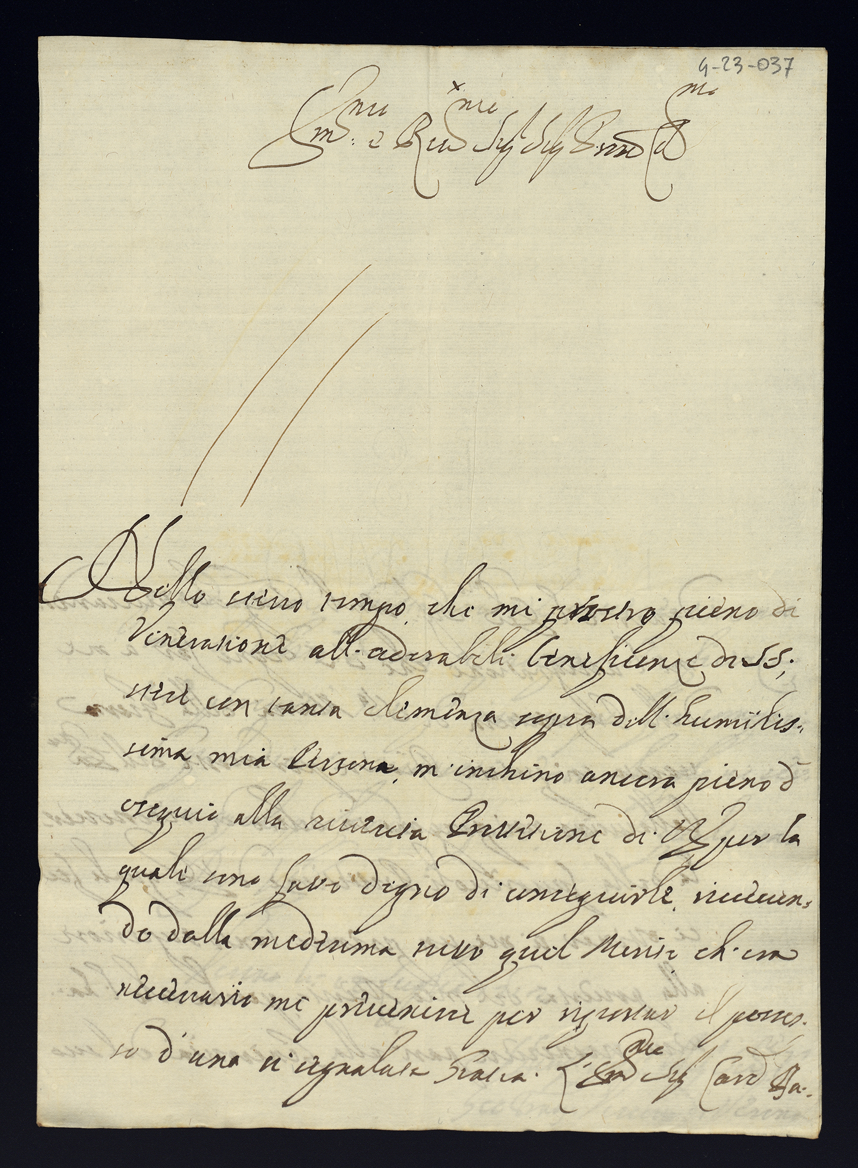 4-23-037
Em.mo e Re.mo Sig.r Sig.r P.rone Col.mo
Nello stesso tempo, che mi prostro pieno di
Venerazione all'adorabili beneficenze di SS,
stese con tanta clemenza sopra dell'humilis-
sima mia Persona, m'inchino ancora pieno d'
ossequio alla riverita Protezione di VE per la
quale sono stato degno di conseguirle, riceven-
do dalla medesima tutto quel Merito ch'era
necessario me prevenire per riportar il posses-
so d'una sì segnalata Grazia. L'Em.mo Sig.r Card. Ba-